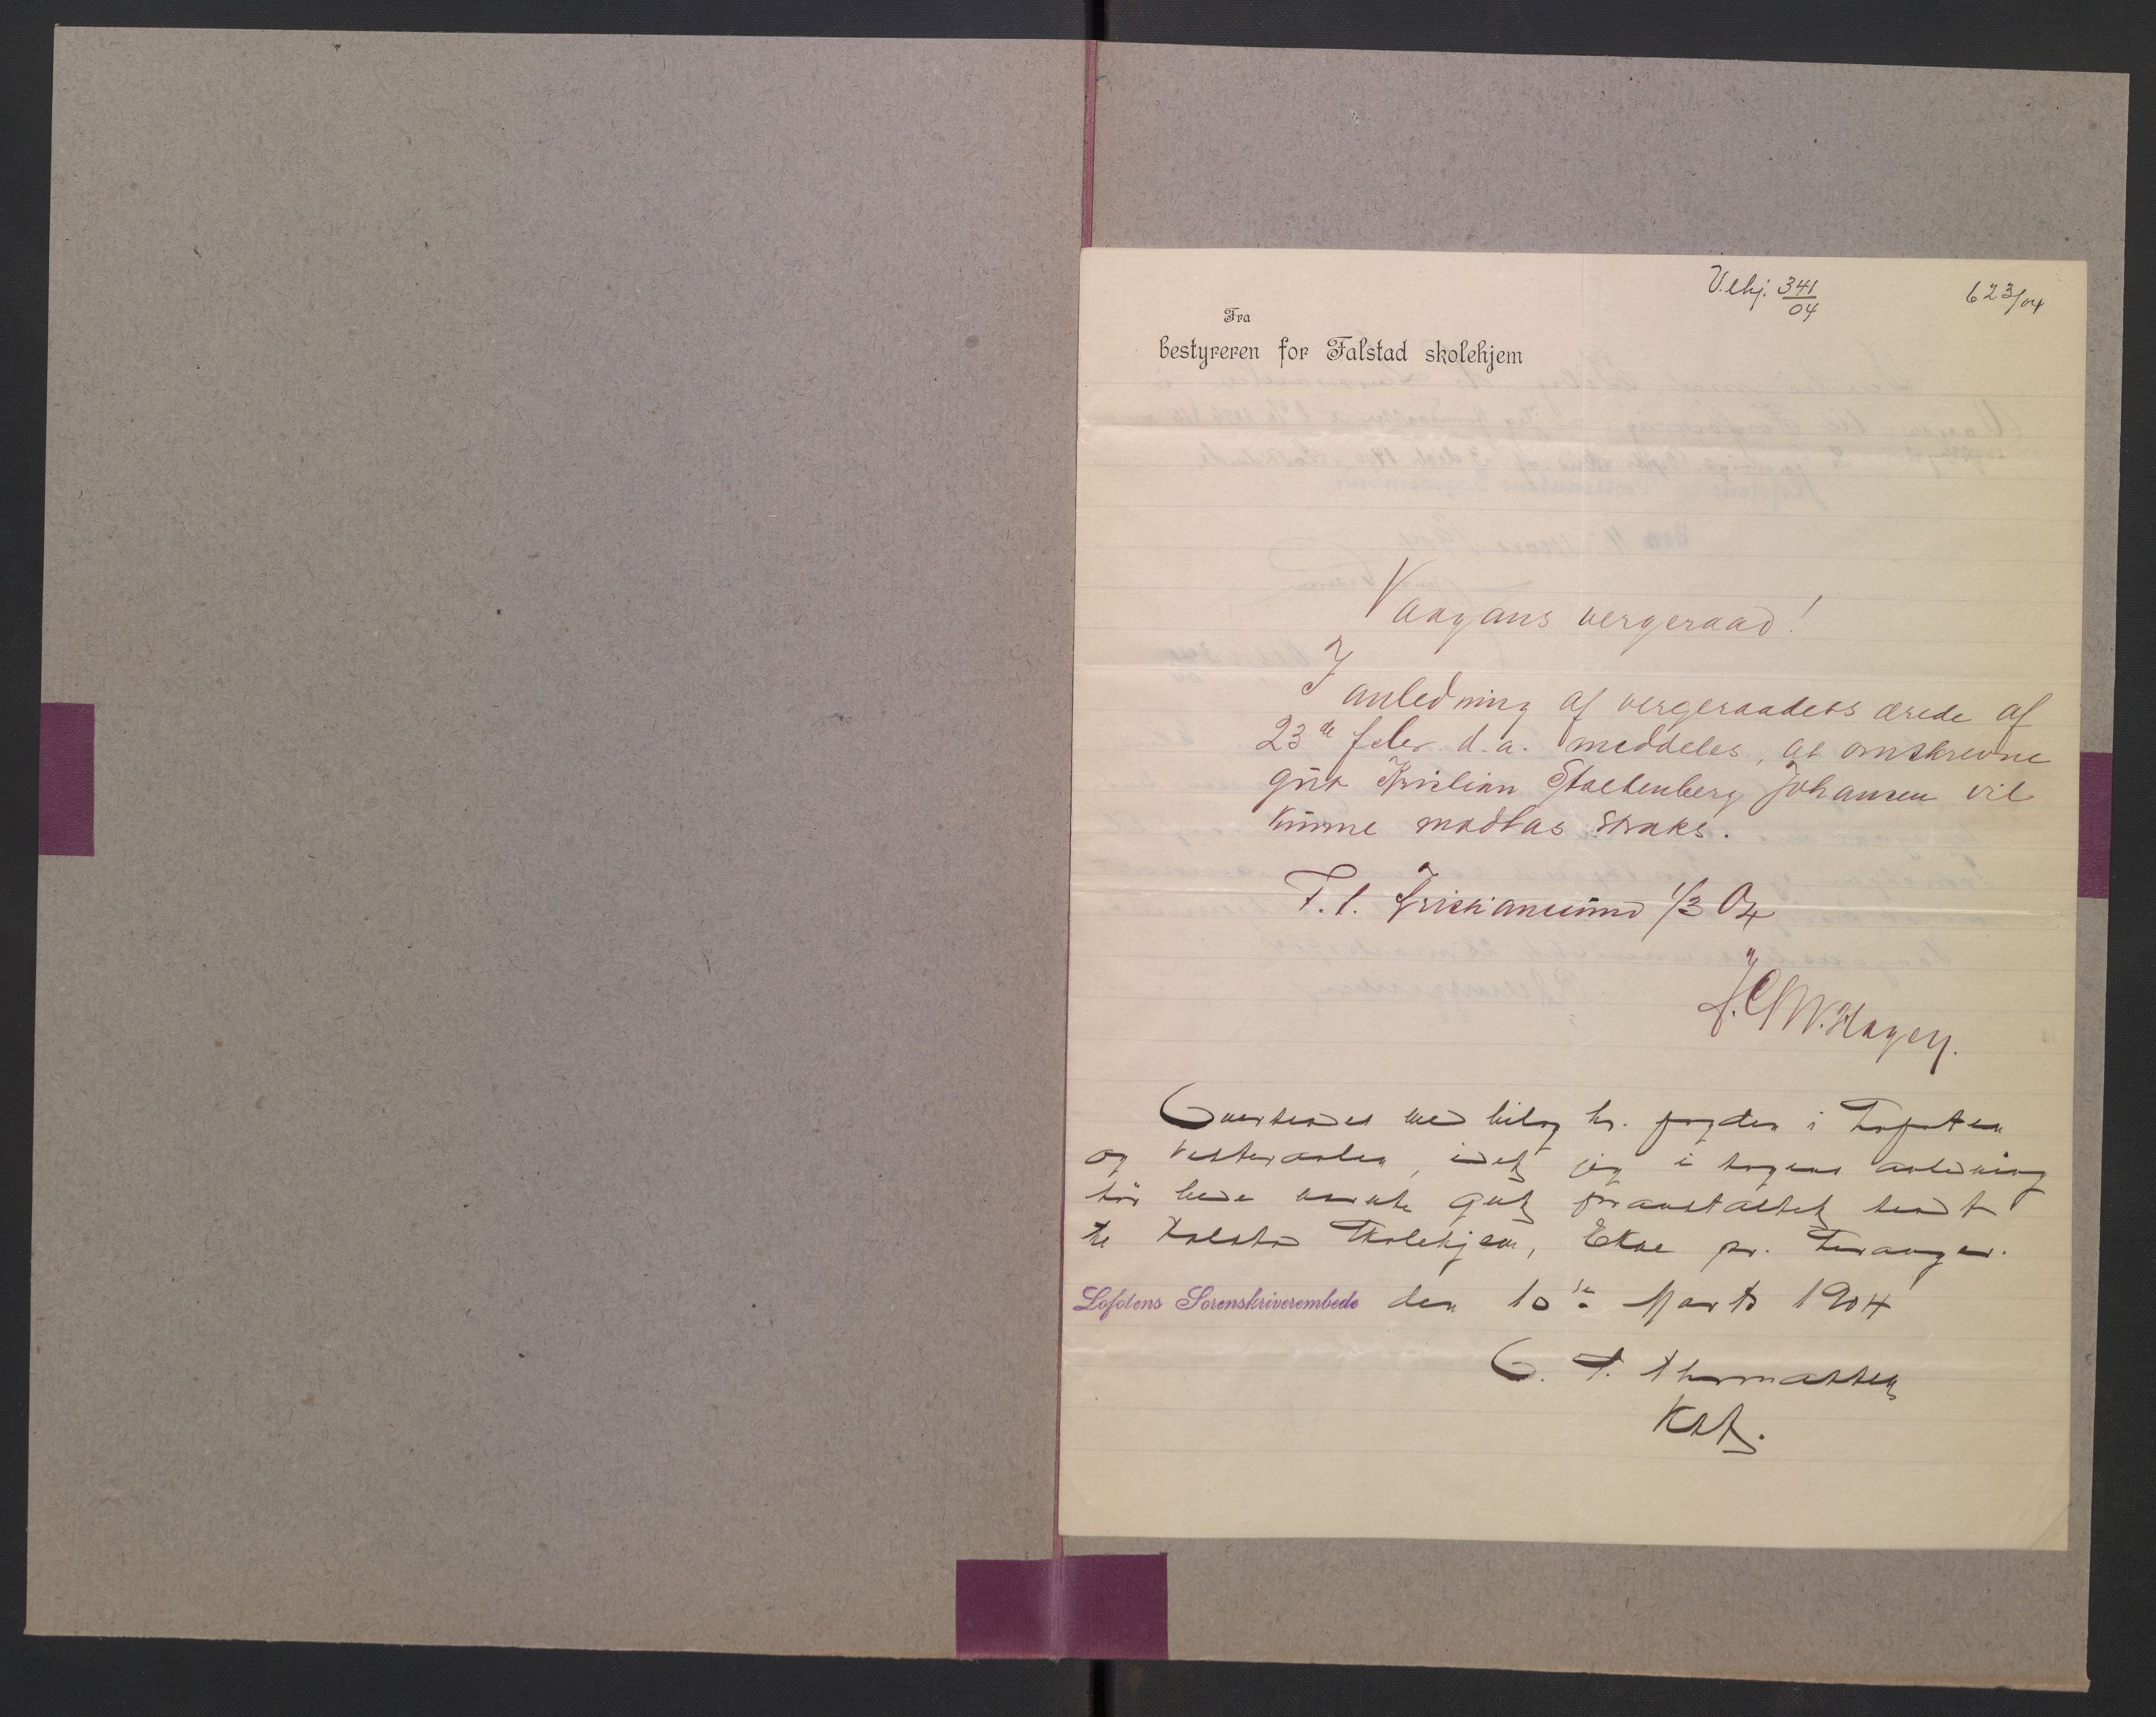 V.ekj. 341/04
623/04
Fra
bestyreren for Falstad skolehjem
Vaagans vergeraad!
I
anledning af vergeraadets ærede af
23de febr. d.a. meddeles, at omskrevne
gut Kristian Stoltenberg Johansen vil
kunne modtas straks.
T.t. Kristiansund 1/3 04
J.C.M. Hagen.
Oversendes med bilag hr. fogden i Lofoten
og Vesteraalen, idet jeg i sagens anledning
tør bede nævnte gut foranstaltet sendt
til Falstad Skolehjem, Ekne pr. Levanger.
Lofotens Sorenskriverembede den 10de Marts 1904
C. F. Thomassen
Kst.